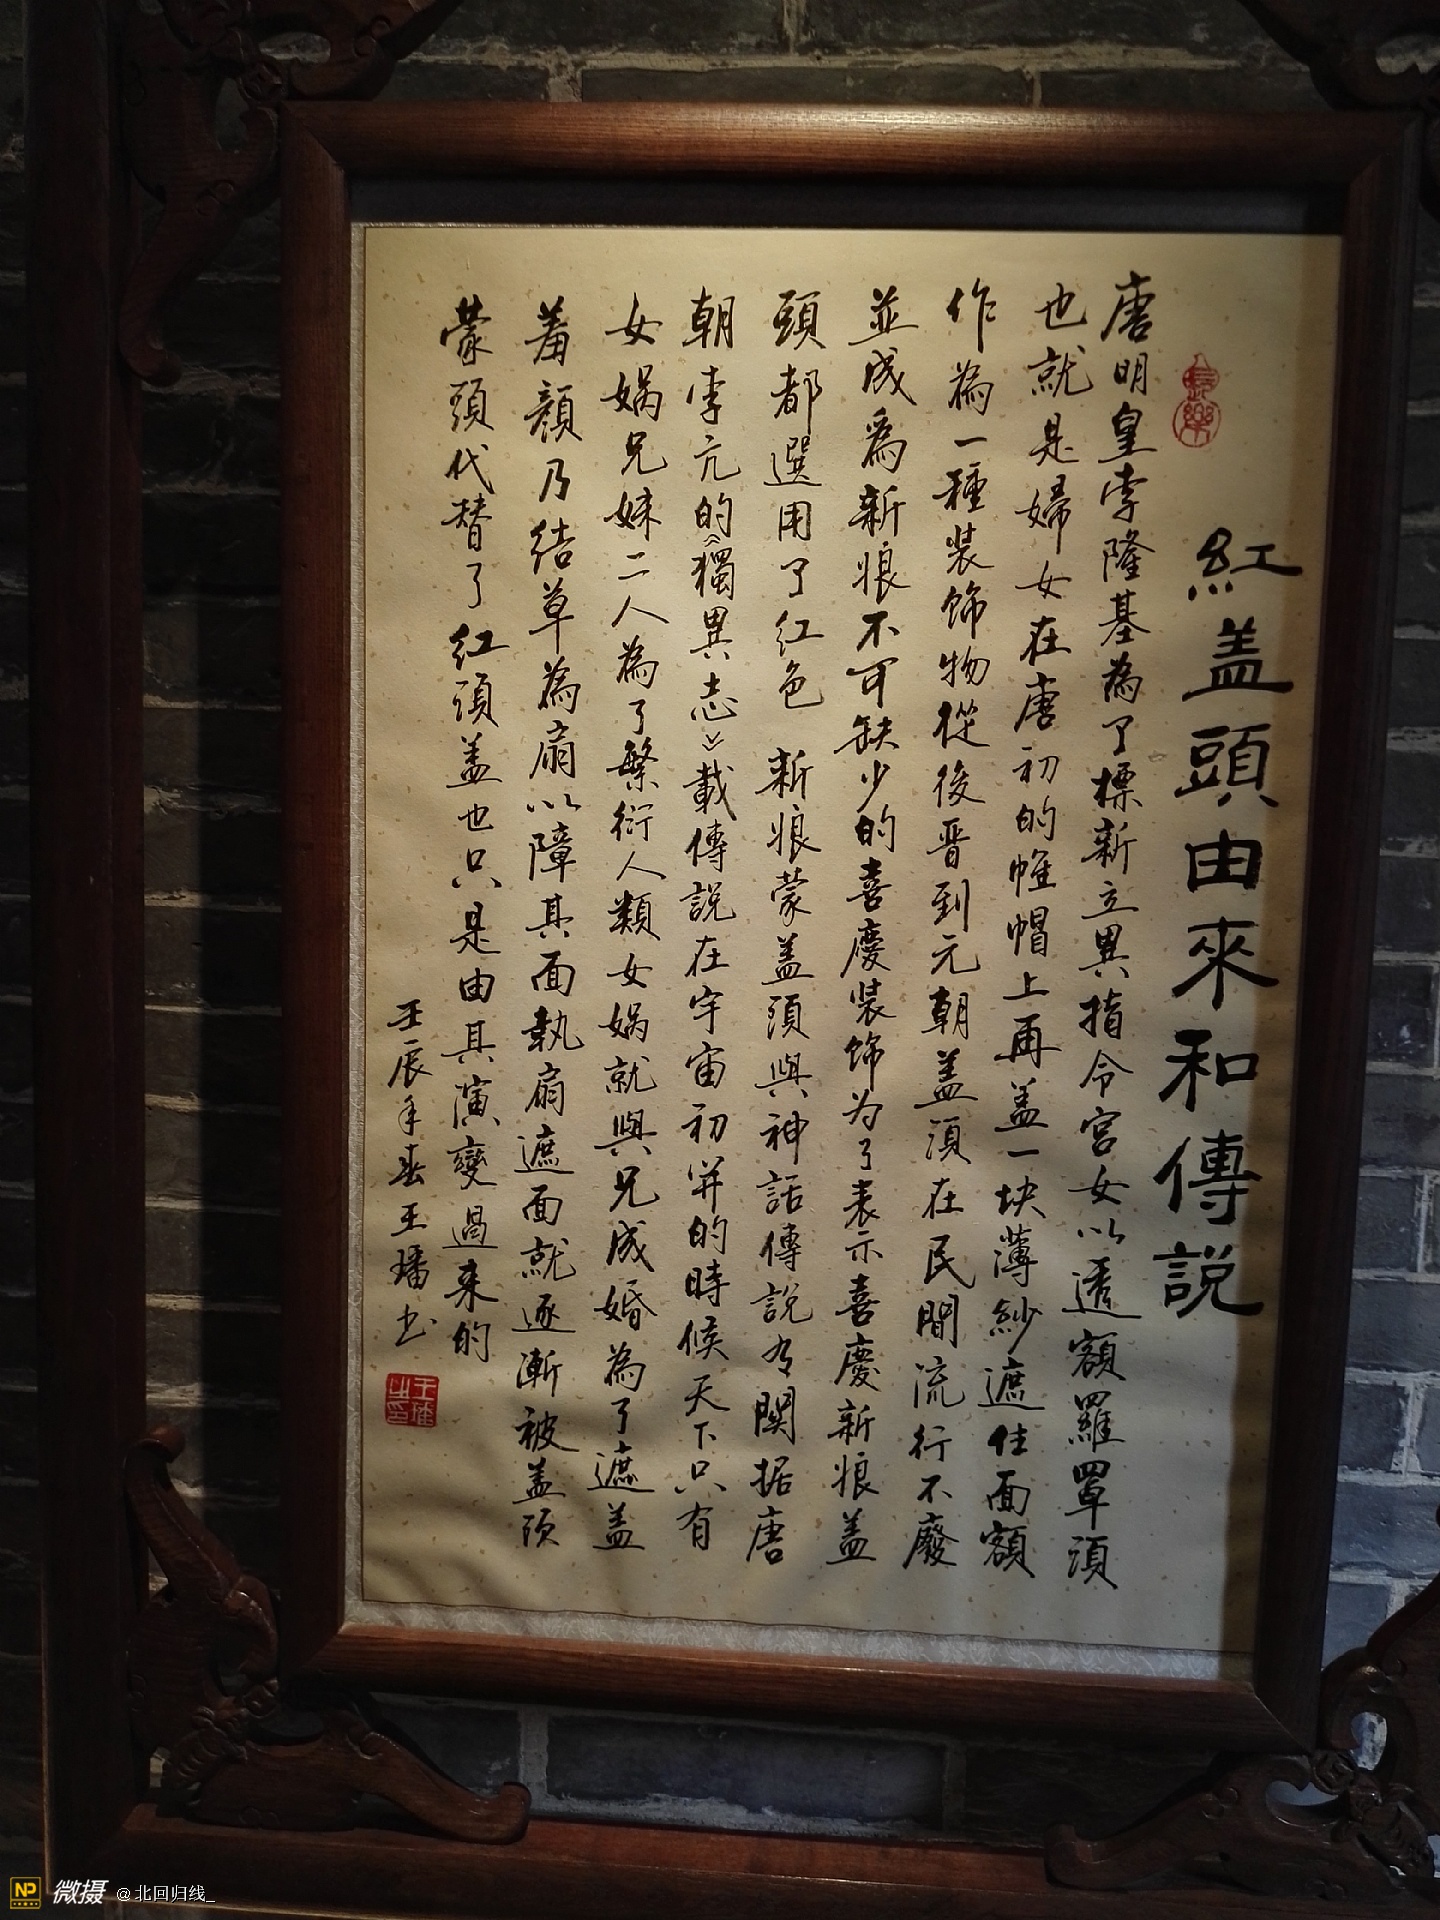 紅盖頭由來和傳説
長樂
唐明皇李隆基為了標新立異指令宫女以透額羅罩頭
也就是婦女在唐初的帷帽上再盖一块薄紗遮住面額
作為一種装饰物從後晋到元朝盖頭在民間流行不廢
並成為新娘不可缺少的喜慶装饰为了表示喜慶新娘盖
頭都選用了红色 新娘蒙盖頭與神話傳説有関据唐
朝李亢的《獨異志》載傳説在宇宙初开的時候天下只有
女娲兄妹二人為了繁衍人類女娲就與兄成婚為了遮盖
羞颜乃结草為扇以障其面執扇遮面就逐漸被盖頭
蒙頭代替了红頭盖也只是由其演變過来的
壬辰年春王璠书
NP 微摄 @北回归线_